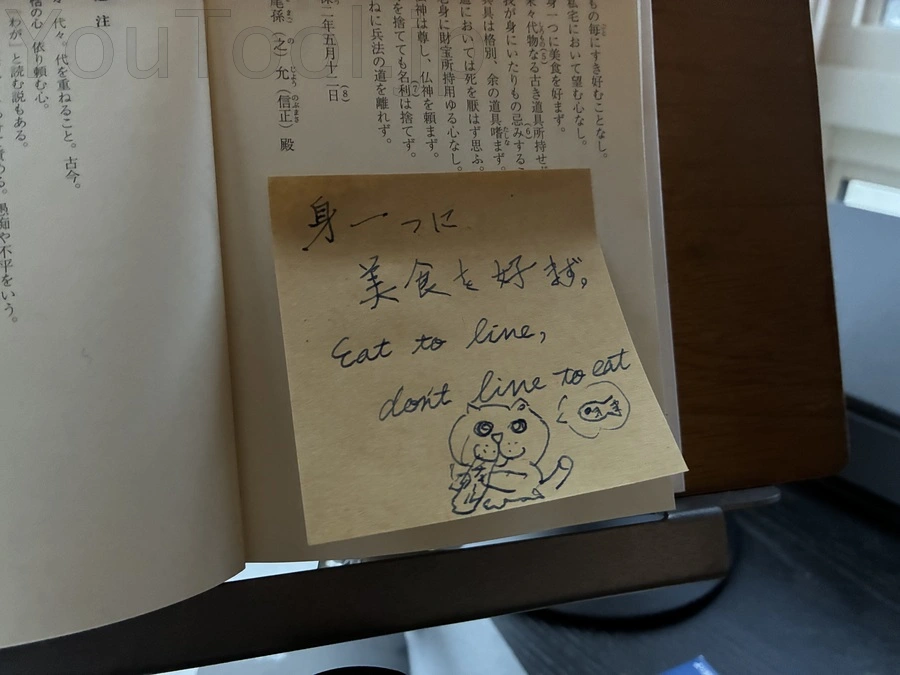 もの毎にすき好むことなし。
私宅において望む心なし。
身一つに美食を好まず。
末々代物なる古き道具所持せ
我が身にいたりもの忌みするこ
具は格別、余の道具嗜まず。
道においては死を厭はず思ふ。
老身に財宝所持用ゆる心なし。
仏神は尊し、仏神を頼まず。
を捨てても名利は捨てず。
ねに兵法の道を離れず。
保二年五月十二日
尾孫(之)允(信正)殿
注
代々。代を重ねること。古今。
倍の心 依り頼む心。
わが」と読む説もある。
愚痴や不平をいう。
身一つに
美食を好まず。
Eat to live,
don't live to eat
YouTool